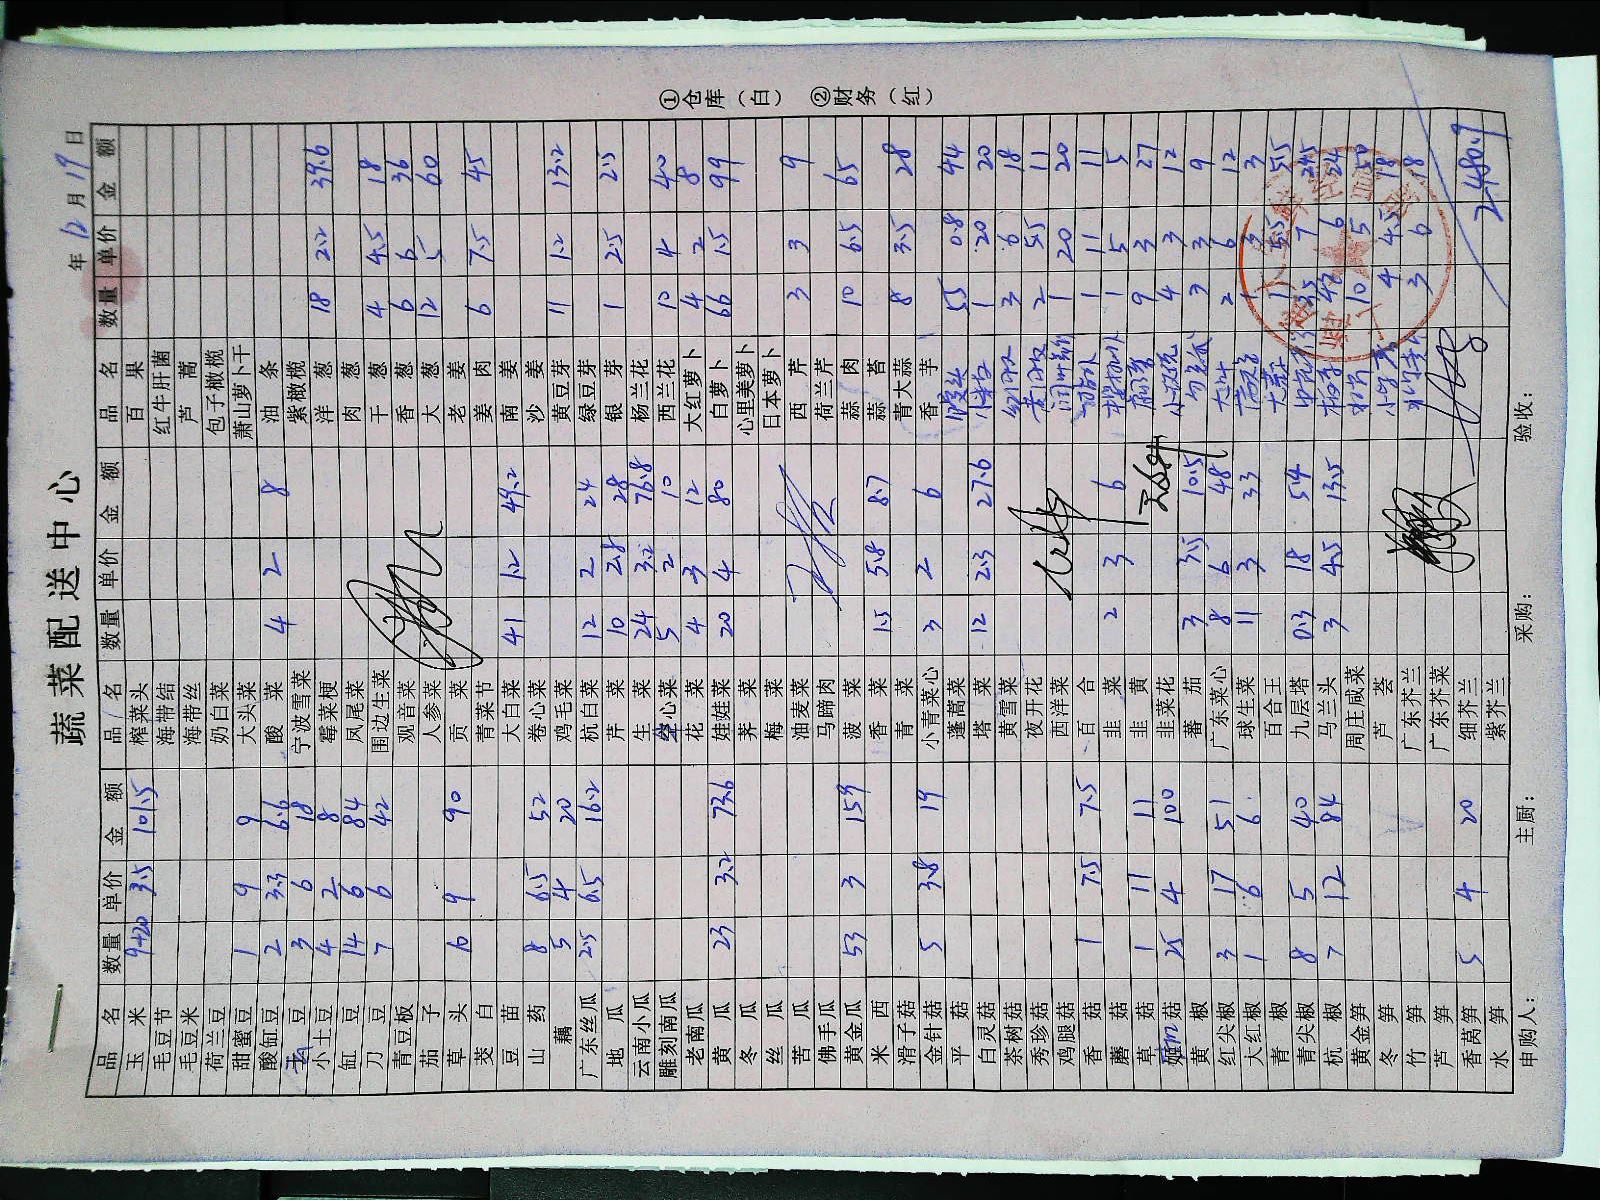 蔬菜配送中心
年 12 月 19 日
品名 数量 单价 金额 品名 数量 单价 金额 品名 数量 单价 金额
玉米 9+20 3.5 101.5 榨菜头 百果
毛豆节 海带结 红牛肝菌
毛豆米 海带丝 芦蒿
荷兰豆 奶白菜 包子橄榄
甜蜜豆 1 9 9 大头菜 萧山萝卜干
酸缸豆 2 3.3 6.6 酸菜 4 2 8 油条
豆 3 6 18 宁波雪菜 紫橄榄
小土豆 4 2 8 霉菜梗 洋葱 18 2.2 39.6
缸豆 14 6 84 凤尾菜 肉葱
刀豆 7 6 42 围边生菜 干葱 4 4.5 18
青豆板 观音菜 香葱 6 6 36
茄子 人参菜 大葱 12 5 60
草头 10 9 90 贡菜 老姜
茭白 青菜节 姜肉 6 7.5 45
豆苗 大白菜 41 1.2 49.2 南姜
山药 8 6.5 52 卷心菜 沙姜
藕 5 4 20 鸡毛菜 黄豆芽 11 1.2 13.2
广东丝瓜 2.5 6.5 16.2 杭白菜 12 2 24 绿豆芽
地瓜 芹菜 10 2.8 28 银芽 1 2.5 2.5
云南小瓜 生菜 24 3.2 76.8 杨兰花
雕刻南瓜 空心菜 5 2 10 西兰花 10 4 40
老南瓜 花菜 4 3 12 大红萝卜 4 2 8
黄瓜 23 3.2 73.6 娃娃菜 20 4 80 白萝卜 66 1.5 99
冬瓜 荠菜 心里美萝卜
丝瓜 梅菜 日本萝卜
苦瓜 油麦菜 西芹 3 3 9
佛手瓜 马蹄肉 荷兰芹
黄金瓜 53 3 159 菠菜 蒜肉 10 6.5 65
米西 香菜 1.5 5.8 8.7 蒜苔
滑子菇 青菜 青大蒜 8 3.5 28
金针菇 5 3.8 19 小青菜心 3 2 6 香芋
平菇 蓬蒿菜 55 0.8 44
白灵菇 塔菜 12 2.3 27.6 1 20 20
茶树菇 黄雪菜 3 6 18
秀珍菇 夜开花 2 5.5 11
鸡腿菇 西洋菜 1 20 20
香菇 1 7.5 7.5 百合 1 11 11
蘑菇 韭菜 2 3 6 1 5 5
草菇 1 11 11 韭黄 9 3 27
菇 25 4 100 韭菜花 4 3 12
黄椒 蕃茄 3 3.5 10.5 3 3 9
红尖椒 3 17 51 广东菜心 8 6 48 2 6 12
大红椒 1 6 6 球生菜 11 3 33 1 3 3
青椒 百合王 1 5.5 5.5
青尖椒 8 5 40 九层塔 0.3 18 54 3.5 7 24.5
杭椒 7 12 84 马兰头 3 4.5 13.5 6 24
黄金笋 周庄咸菜 10 5 50
冬笋 芦荟 4 4.5 18
竹笋 广东芥兰 3 6 18
芦笋 广东芥菜
香莴笋 5 4 20 细芥兰 2480.9
水笋 紫芥兰
申购人： 主厨： 采购： 验收：
①仓库（白） ②财务（红）